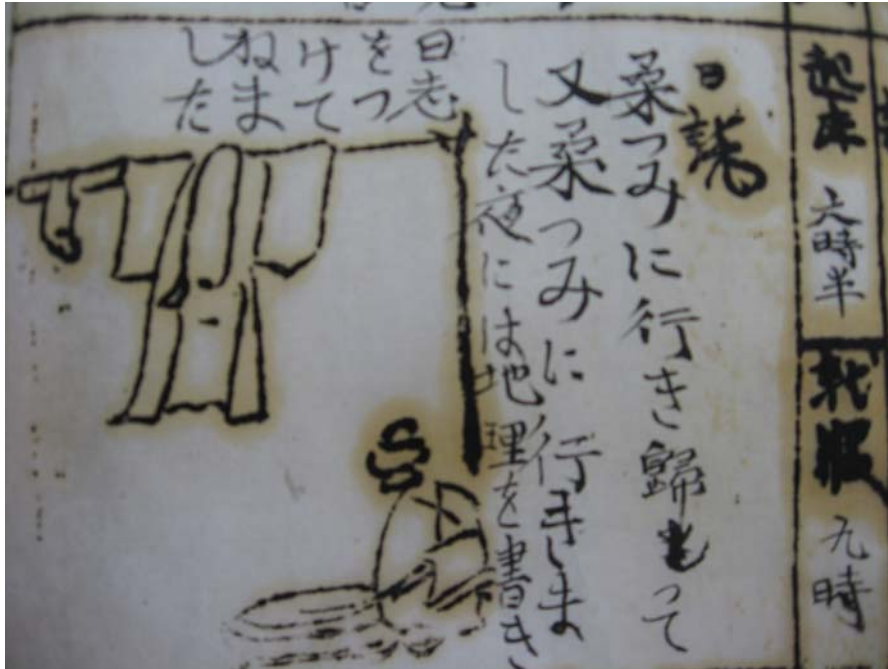 起床 六時半
就眠 九時
日誌
桑つみに行き歸もって
又桑つみに行きま
した夜には地理を書き
日志
をつ
けて
ねま
した